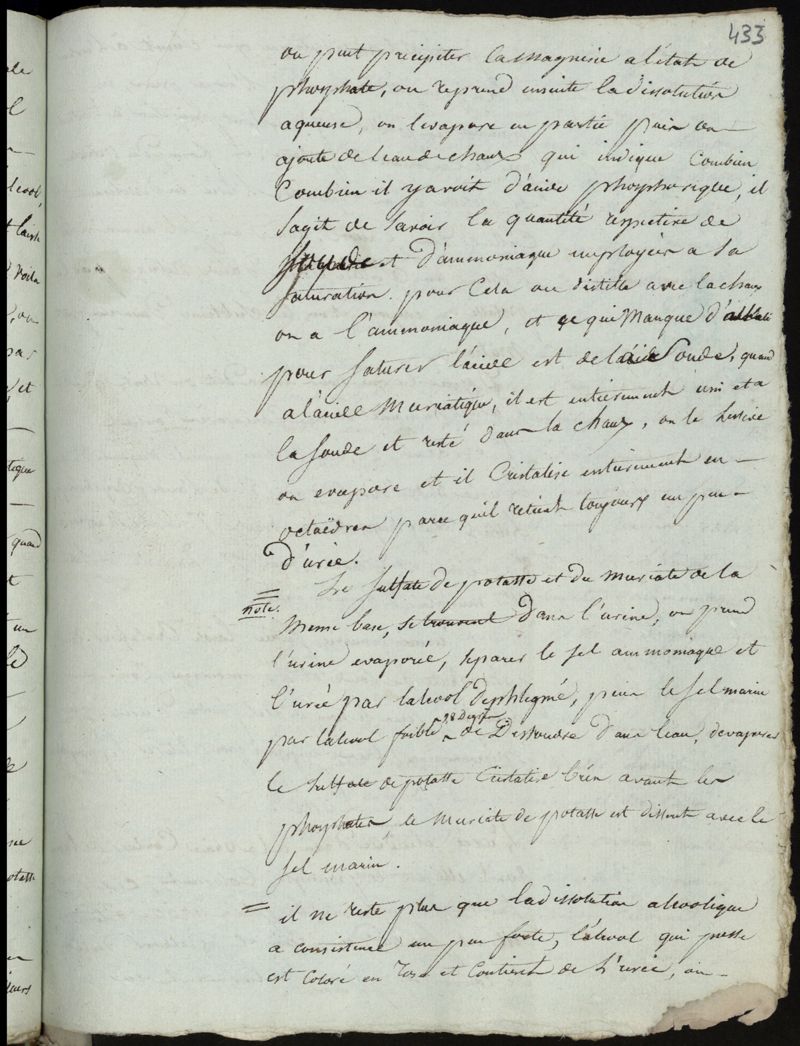 433
on peut precipiter la magnesie a l'état de
phosphate, on reprend ensuite la dissolution
aqueuse, on l'evapore en partie puis on
ajoute de l'eau de chaux qui indique Combien
Combien il y avoit d'acide phosphorique, il
sagit de savoir la quantité respective de
soude et d'ammoniaque employées a sa
saturation. pour Cela on distille avec la chaux
on a l'ammoniaque, et ce qui Manque d'alkali
pour saturer l'acide est de la Soude, quand
a l'acide Muriatique, il est entierement uni et a
la soude et resté dans la chaux, on le lessive
on evapore et il Cristalise entierement en
octaëdres parce qu'il retient toujours un peu
d'urée.
Le Sulfate de potasse et du muriate de la
note.
meme base, se trouvent dans l'urine, on prend
l'urine evaporée, separer le sel ammoniaque et
l'urée par l'alcool dephlegmé, puis le sel marin
par l'alcool foible 28 Degr. de Dissoudre dans l'eau, d'evaporer
le sulfate de potasse Cristalise bien avant les
phosphates le Muriate de potasse est dissout avec le
sel marin.
il ne reste plus que la dissolution alcoolique
a consistence un peu forte, l'alcool qui passe
est Coloré en rose et Contient de l'urée, on